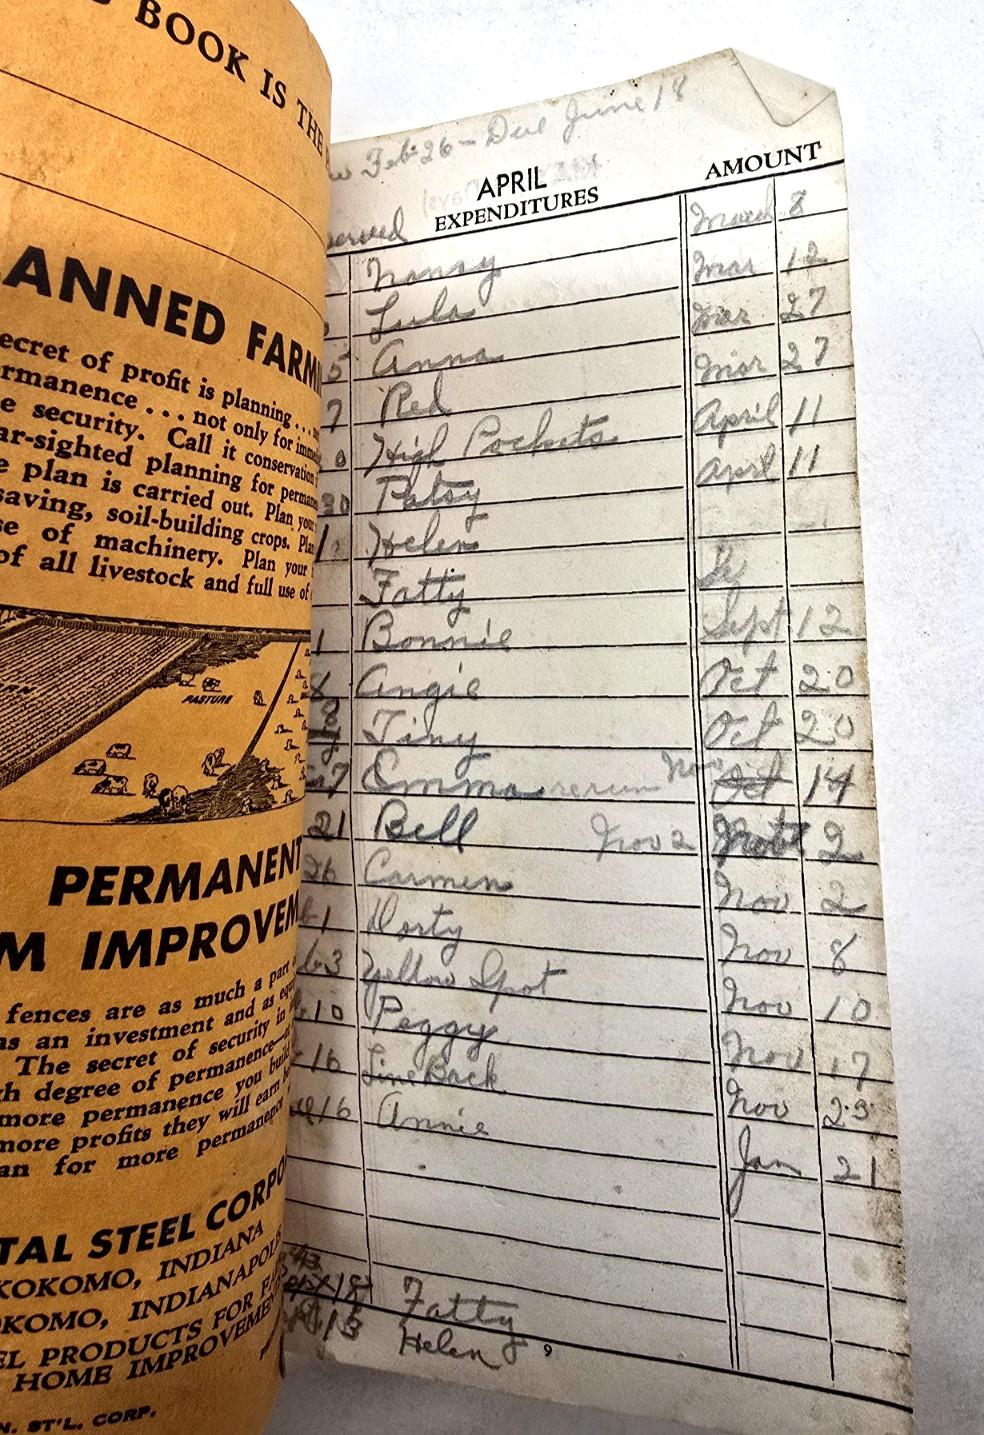 BOOK IS THE
ANNED FARMI
ecret of profit is planning...
rmanence ... not only for
e security. Call it conservation
ar-sighted planning for
e plan is carried out. Plan your
saving, soil-building crops.
se of machinery. Plan your
of all livestock and full use of
PASTURE
PERMANENT
M IMPROVEM
fences are as much a part
as an investment and as
The secret of security in
h degree of permanence
more permanence you build
more profits they will earn
an for more permanence
TAL STEEL CORPO
KOKOMO, INDIANA
KOMO, INDIANAPOLIS
EL PRODUCTS FOR
HOME IMPROVEMEN
N. ST'L. CORP.
Feb 26 - Due June 18
APRIL
EXPENDITURES AMOUNT
served March 8
Nancy Mar 12
Lula Mar 27
5 Anna Mar 27
7 Red April 11
0 High Pockets April 11
30 Patsy
1 Helen
Fatty
1 Bonnie Sept 12
8 Angie Oct 20
8 Tiny Oct 20
7 Emma Nov Oct 14
21 Bell Nov 2 2
26 Carmen Nov 2
1 Dorty Nov 8
3 Yellow Spot Nov 10
10 Peggy Nov 17
16 Line Back Nov 23
16 Annie Jan 21
18 Fatty
13 Helen
9